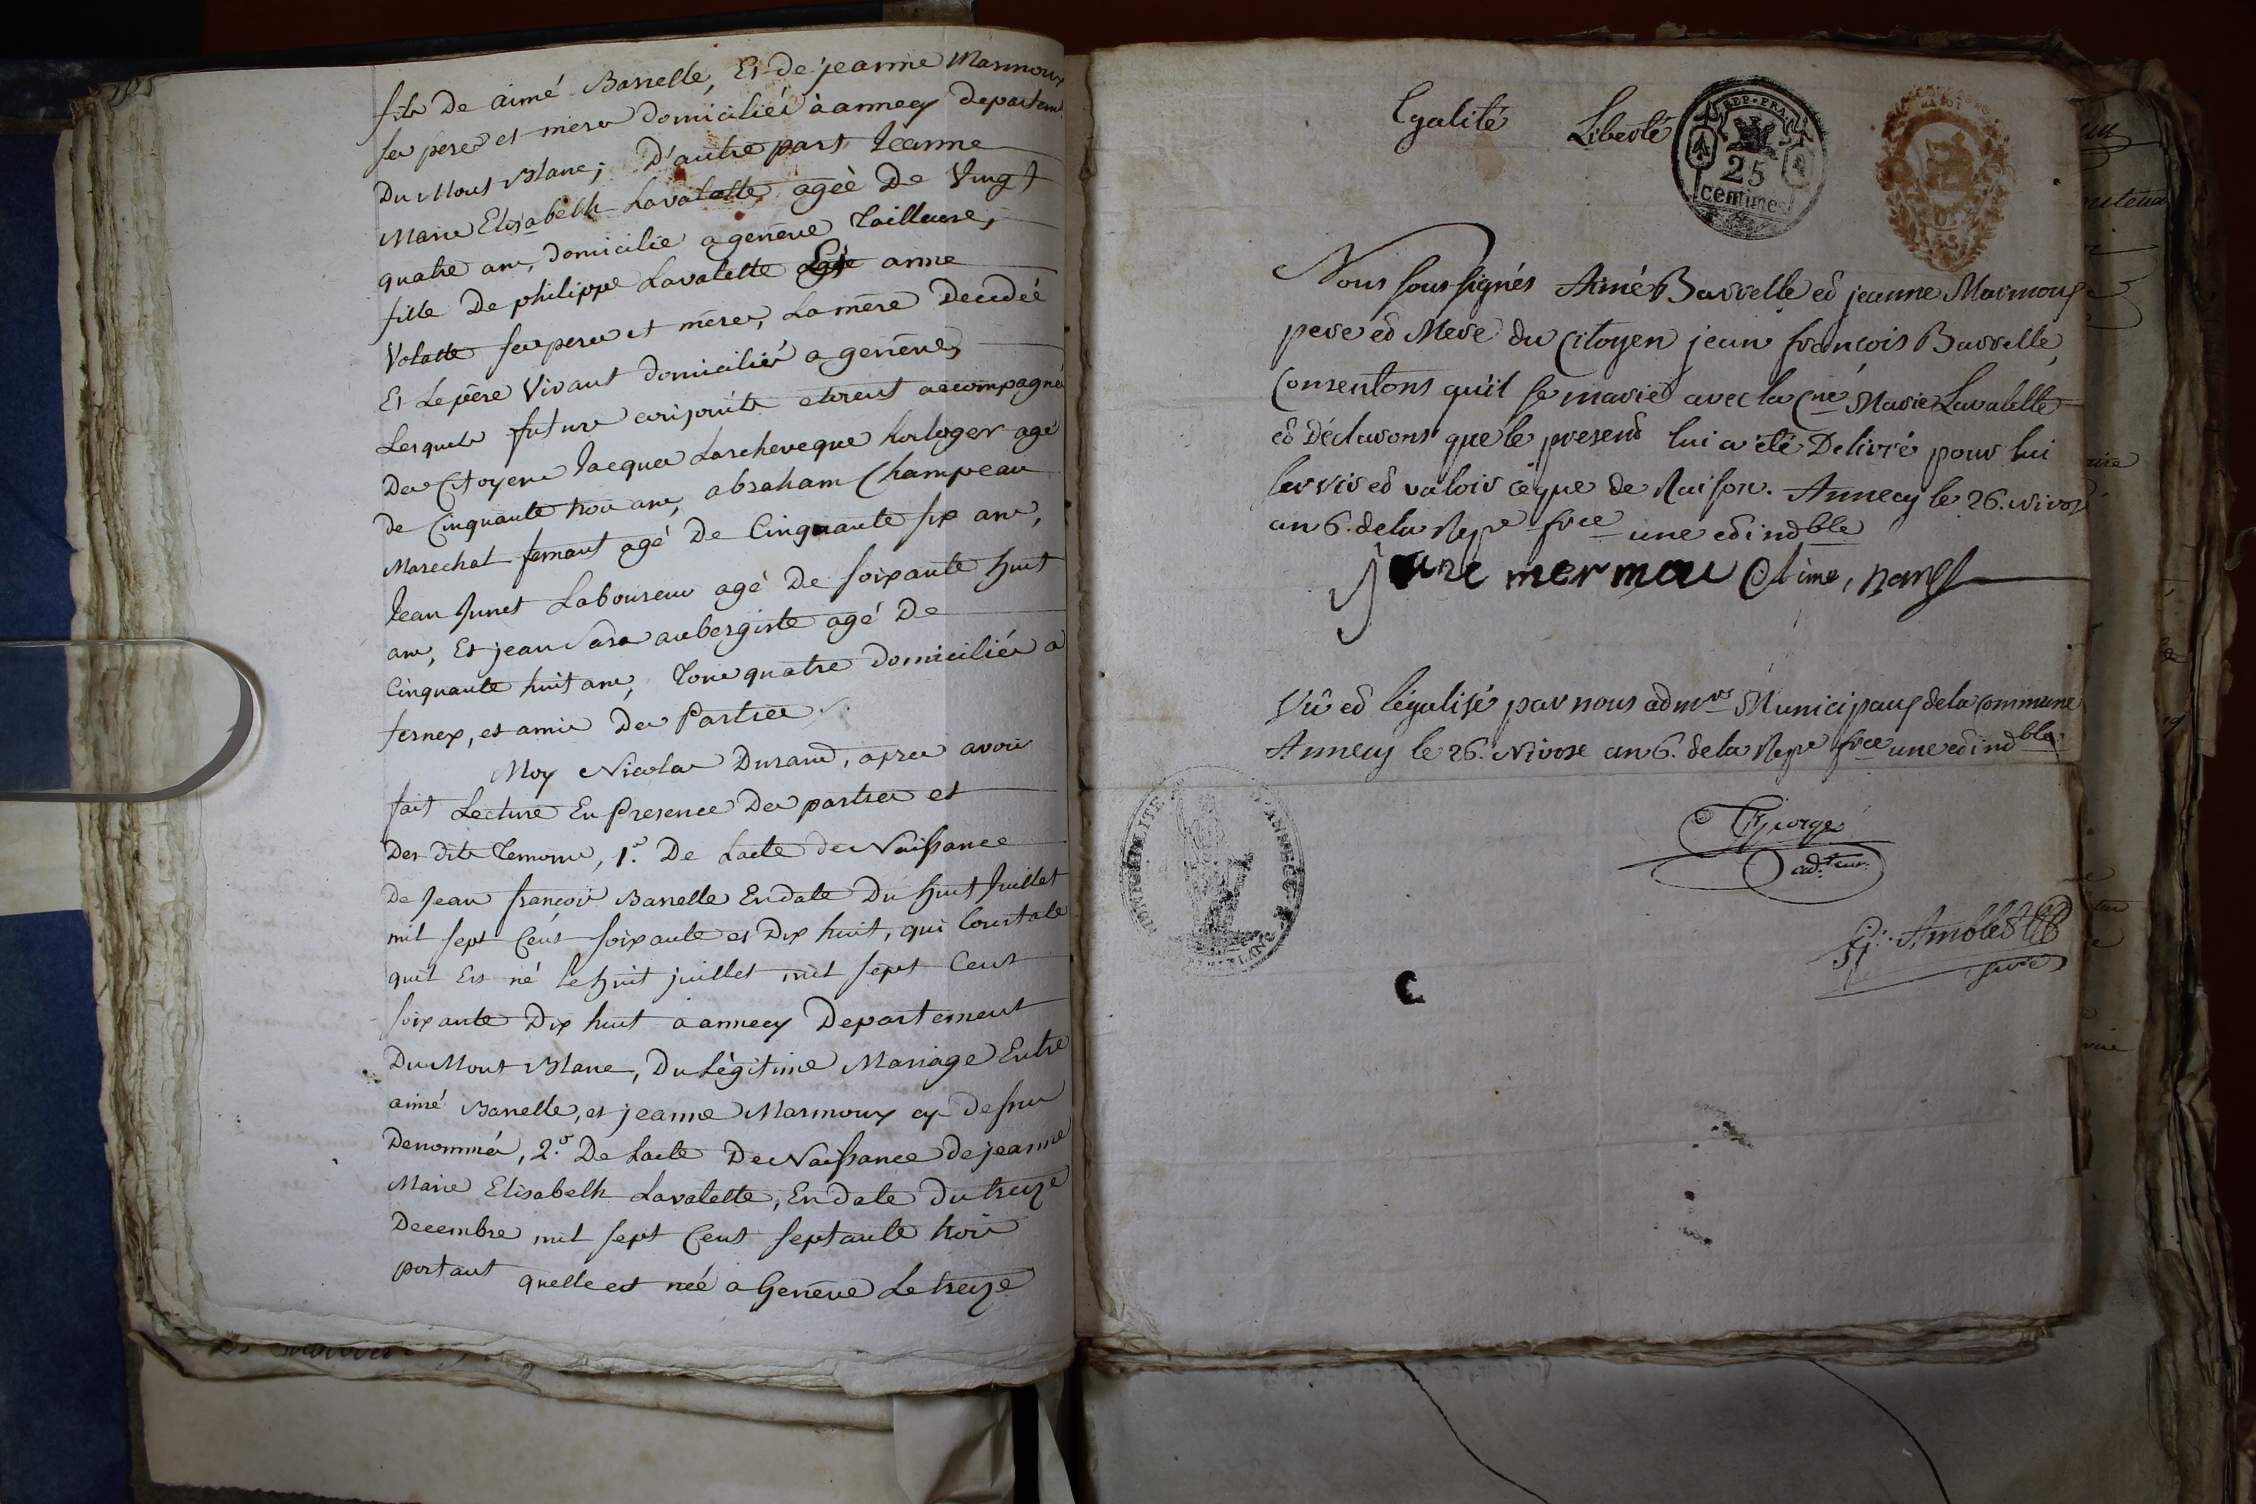 fils De aimé Barrelle, Et de jeanne Marmoux
ses péres et méres domiciliés à annecy departem.
Du Mont Blanc; D'autre part Jeanne
Marie Elisabeth Lavalette agéé De Vingt
quatre ans, domicilie a genêve Tailleuse,
fille De philippe Lavalette Et anne
Volatte ses peres et méres, La mére Decedéé
Et Le pére Vivant domiciliés a genêve,
Lesquels futurs conjoints etoient accompagnés
Des Citoyens Jacques Larcheveque horloger agé
de Cinquante trois ans, abraham Champeau
Marechal ferrant agé De Cinquante six ans,
Jean Junet Laboureur agé De soixante huit
ans, Et jean aubergiste agé De
Cinquante huit ans, Tous quatre domiciliés a
fernex, et amis Des Parties.
Moy Nicolas Durand, apres avoir
fait Lecture En Presence Des parties et
Des dits Temoins, 1.° De Lacte de Naissance
De Jean françois Barrelle En date Du huit Juillet
mil sept Cent soixante et Dix huit, qui Constate
quil Est né le huit juillet mil sept Cent
soixante Dix huit a annecy Departement
Du Mont Blanc, Du Lègitime Mariage Entre
aimé Barrelle, et jeanne Marmoux cy Dessus
Denommés, 2.° De Lacte De Naissance de jeanne
Marie Elisabeth Lavalette, En date du treize
Decembre mil sept Cent septante trois
portant quelle est néé a Genêve Le treize
Egalité Liberté
REP. FRA.
25
centimes
Nous sous signés Aimé Barrelle et jeanne Marmoux
pere et Mere du Citoyen jean françois Barrelle,
Consentons qu'il se marie avec la Cne Marie Lavalette
et Déclarons que le present lui a été Delivré pour lui
servir et valoir ce que de Raison. Annecy le 26. nivos
an 6. de la Repe frce une et indble
jane mermou
Vû et légalisé par nous admrs Municipaux de la Commune
Annecy le 26. Nivose an 6. de la Repe frce une et indble
George
adteur.